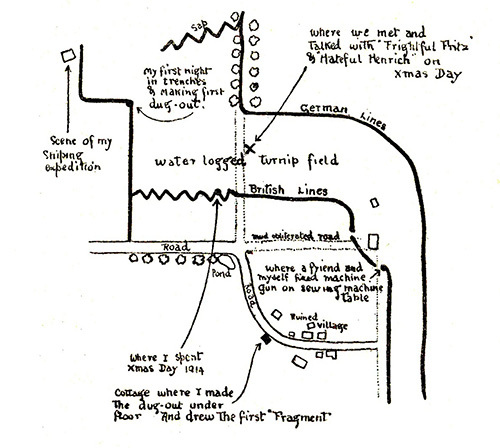 Sap
where we met and
Talked with "Frightful Fritz"
& "Hateful Henrich" on
Xmas Day
My first night
in trenches
& making first
dug-out.
German Lines
Scene of my
Sniping
expedition
water logged turnip field
British Lines
mud obliterated road
Road
Pond
where a friend and
myself fixed machine
gun on sewing machine
table
Road
Ruined
village
where I spent
Xmas Day 1914
Cottage where I made
The dug-out under
floor And drew The first "Fragment"